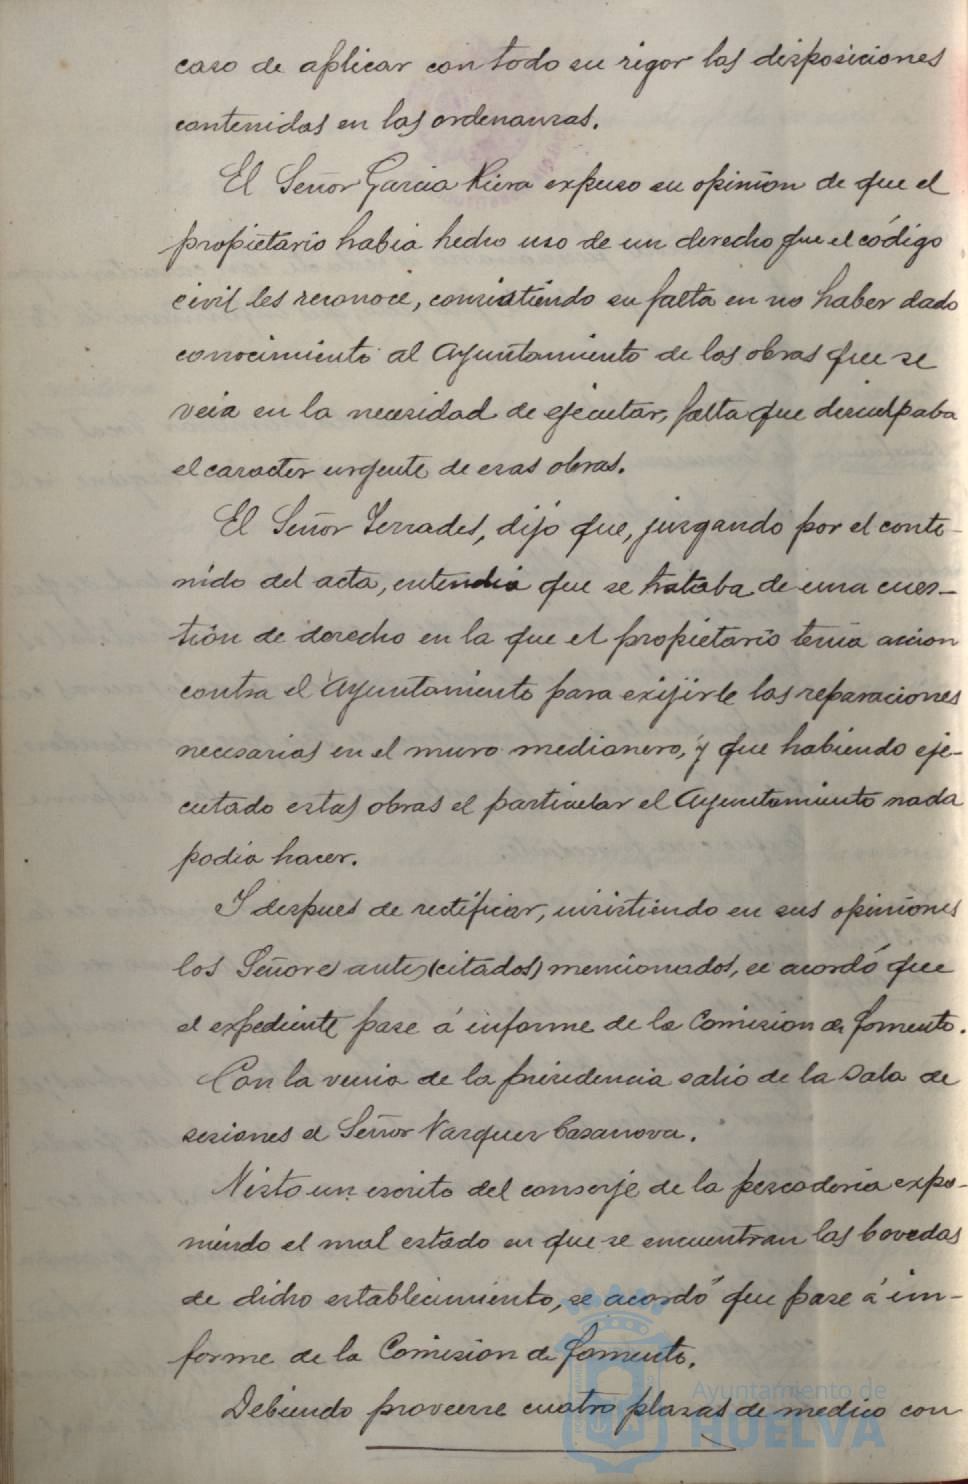 caso de aplicar con todo su rigor las disposiciones
contenidas en las ordenanzas.
El Señor Garcia Riera expuso su opinion de que el
propietario habia hecho uso de un derecho que el código
civil les reconoce, consistiendo su falta en no haber dado
conocimiento al Ayuntamiento de las obras que se
veia en la necesidad de ejecutar, falta que disculpaba
el caracter urgente de esas obras.
El Señor Terrades, dijo que, juzgando por el conte-
nido del acta, entendia que se trataba de una cues-
tión de derecho en la que el propietario tenia accion
contra el Ayuntamiento para exijirle las reparaciones
necesarias en el muro medianero, y que habiendo eje-
cutado estas obras el particular el Ayuntamiento nada
podia hacer.
Y despues de rectificar, insistiendo en sus opiniones
los Señores antes (citados) mencionados, se acordó que
el expediente pase á informe de la Comision de fomento.
Con la venia de la presidencia salió de la Sala de
sesiones el Señor Vazquez Casanova.
Visto un escrito del conserje de la pescaderia expo-
niendo el mal estado en que se encuentran las bovedas
de dicho establecimiento, se acordó que pase á in-
forme de la Comision de fomento.
Debiendo proveerse cuatro plazas de medico con
Ayuntamiento de
HUELVA